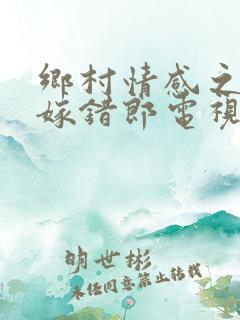 鄉村情感之
嫁錯郎電視
明世彬
未經同意禁止轉載